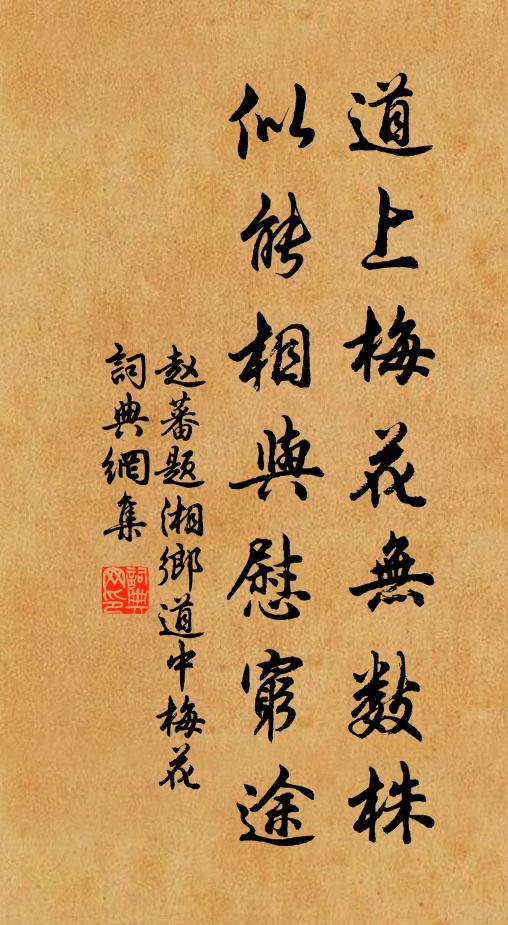 道上梅花無數株
似能相與慰窮途
赵蕃题湘鄉道中梅花
詞典網集
詞典網印